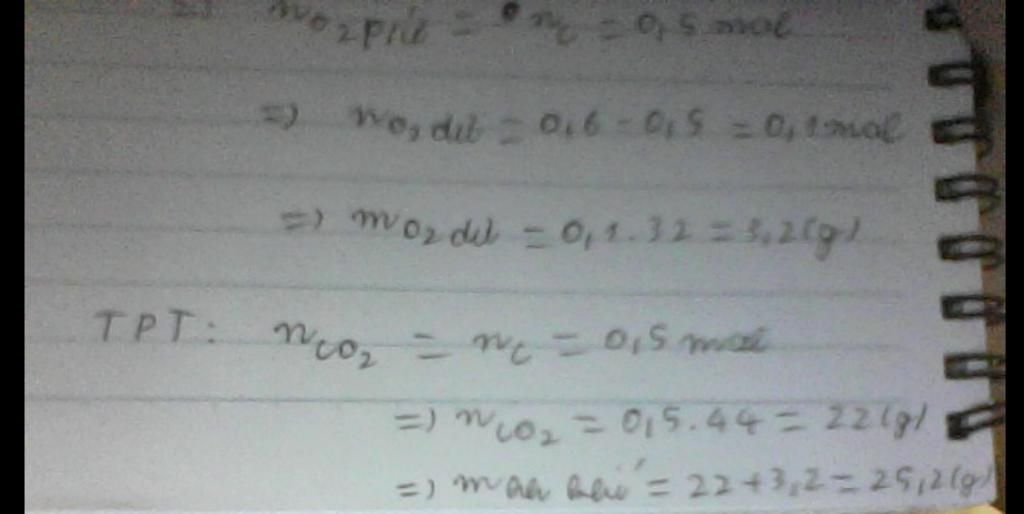 =) nO2pứ = nC = 0,5 mol
=) nO2 dư = 0,6 - 0,5 = 0,1 mol
=) mO2 dư = 0,1.32 = 3,2(g)
TPT: nCO2 = nC = 0,5 mol
=) nCO2 = 0,5.44 = 22(g)
=) m = 22 + 3,2 = 25,2(g)